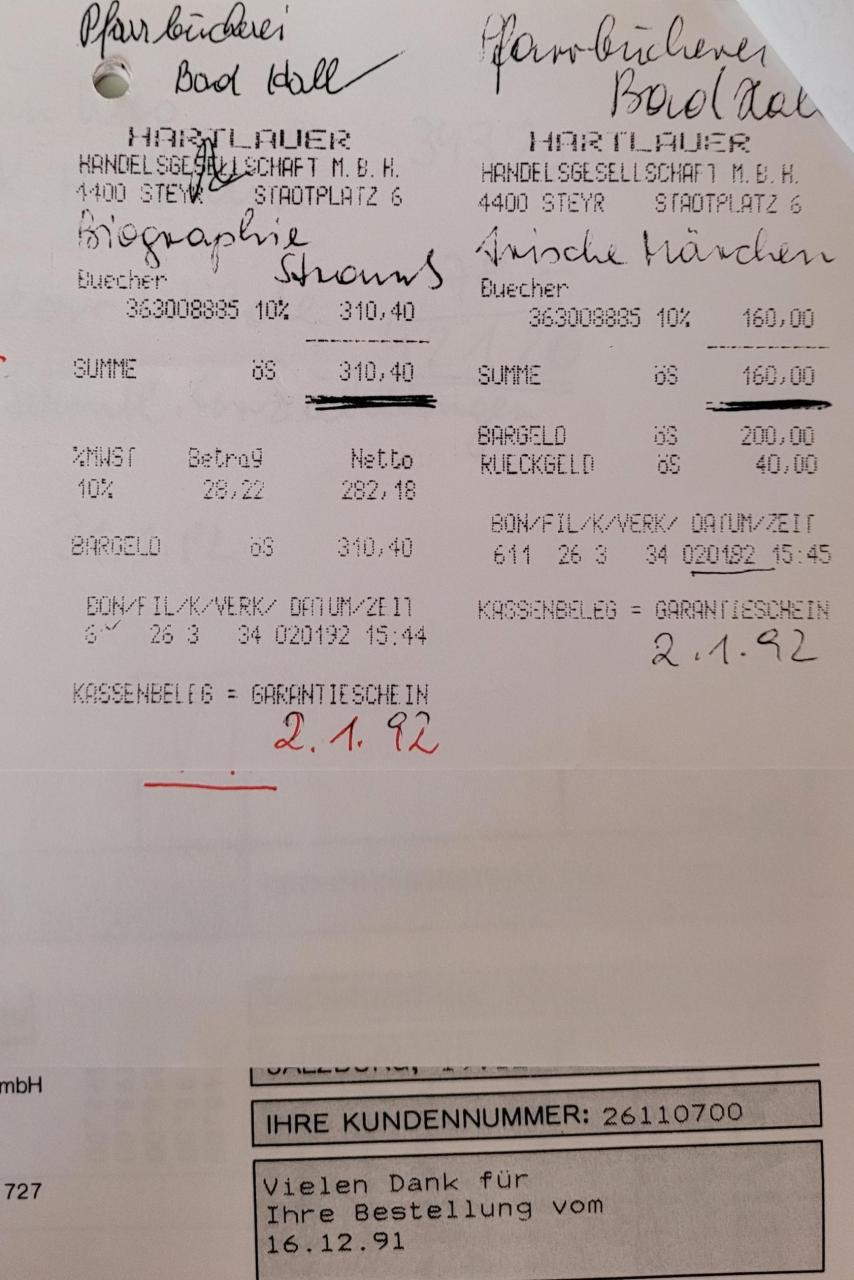 Pfarrbücherei
Bad Hall
HARTLAUER
HANDELSGESELLSCHAFT M.B.H.
4400 STEYR STADTPLATZ 6
Biographie
Strauß
Buecher
363008885 10% 310,40
SUMME öS 310,40
%MWST Betrag Netto
10% 28,22 282,18
BARGELD öS 310,40
BON/FIL/K/VERK/ DATUM/ZEIT
26 3 34 020192 15:44
KASSENBELEG = GARANTIESCHEIN
2.1.92
Pfarrbücherei
Bad Hall
HARTLAUER
HANDELSGESELLSCHAFT M.B.H.
4400 STEYR STADTPLATZ 6
Irische Märchen
Buecher
363008885 10% 160,00
SUMME öS 160,00
BARGELD öS 200,00
RUECKGELD öS 40,00
BON/FIL/K/VERK/ DATUM/ZEIT
611 26 3 34 020192 15:45
KASSENBELEG = GARANTIESCHEIN
2.1.92
mbH
727
SALZBURG,
IHRE KUNDENNUMMER: 26110700
Vielen Dank für
Ihre Bestellung vom
16.12.91